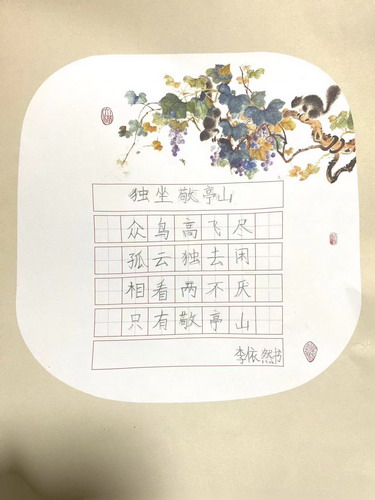 独坐敬亭山
众鸟高飞尽
孤云独去闲
相看两不厌
只有敬亭山
李依然书